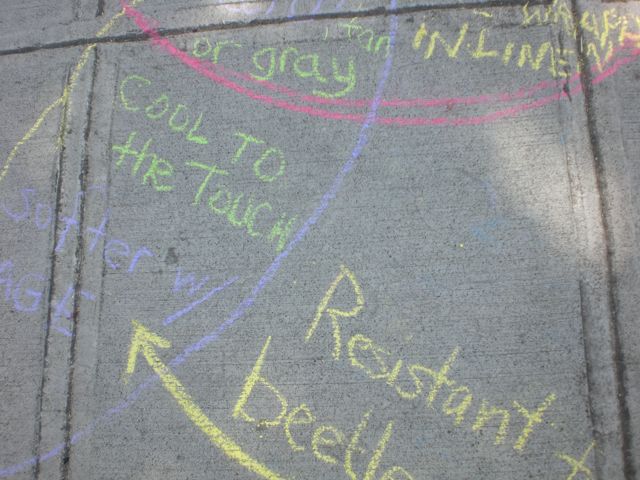 tan
or gray
IN-LINE
COOL TO
tHE TOUCH
softer w/
AGE
Resistant
beetle